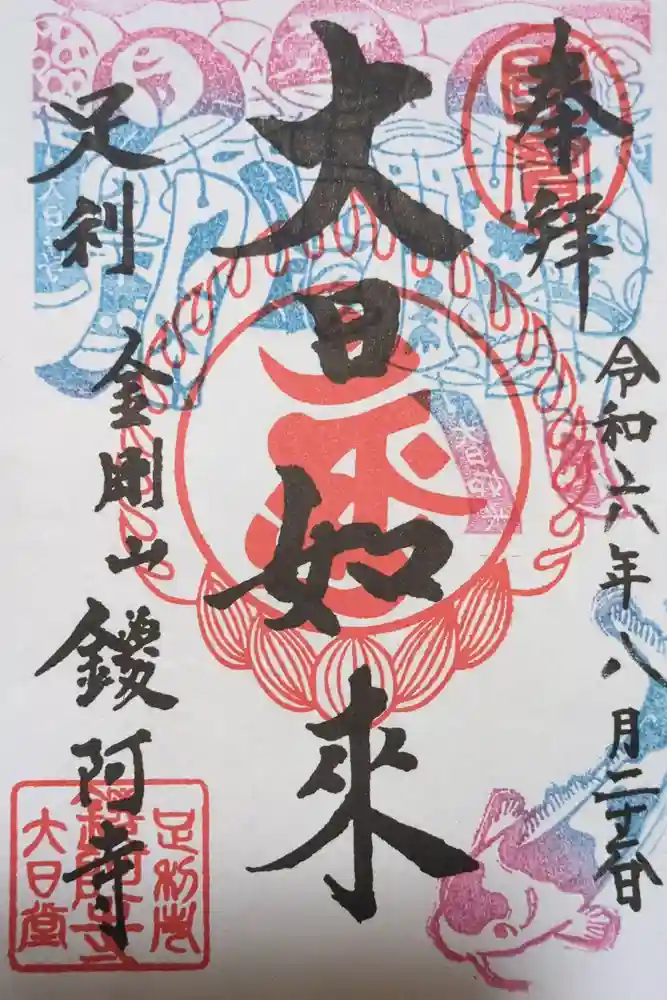 奉拝
令和六年八月二十五日
大日如來
足利
金剛山
鑁阿寺
足利市
鑁阿寺
大日堂